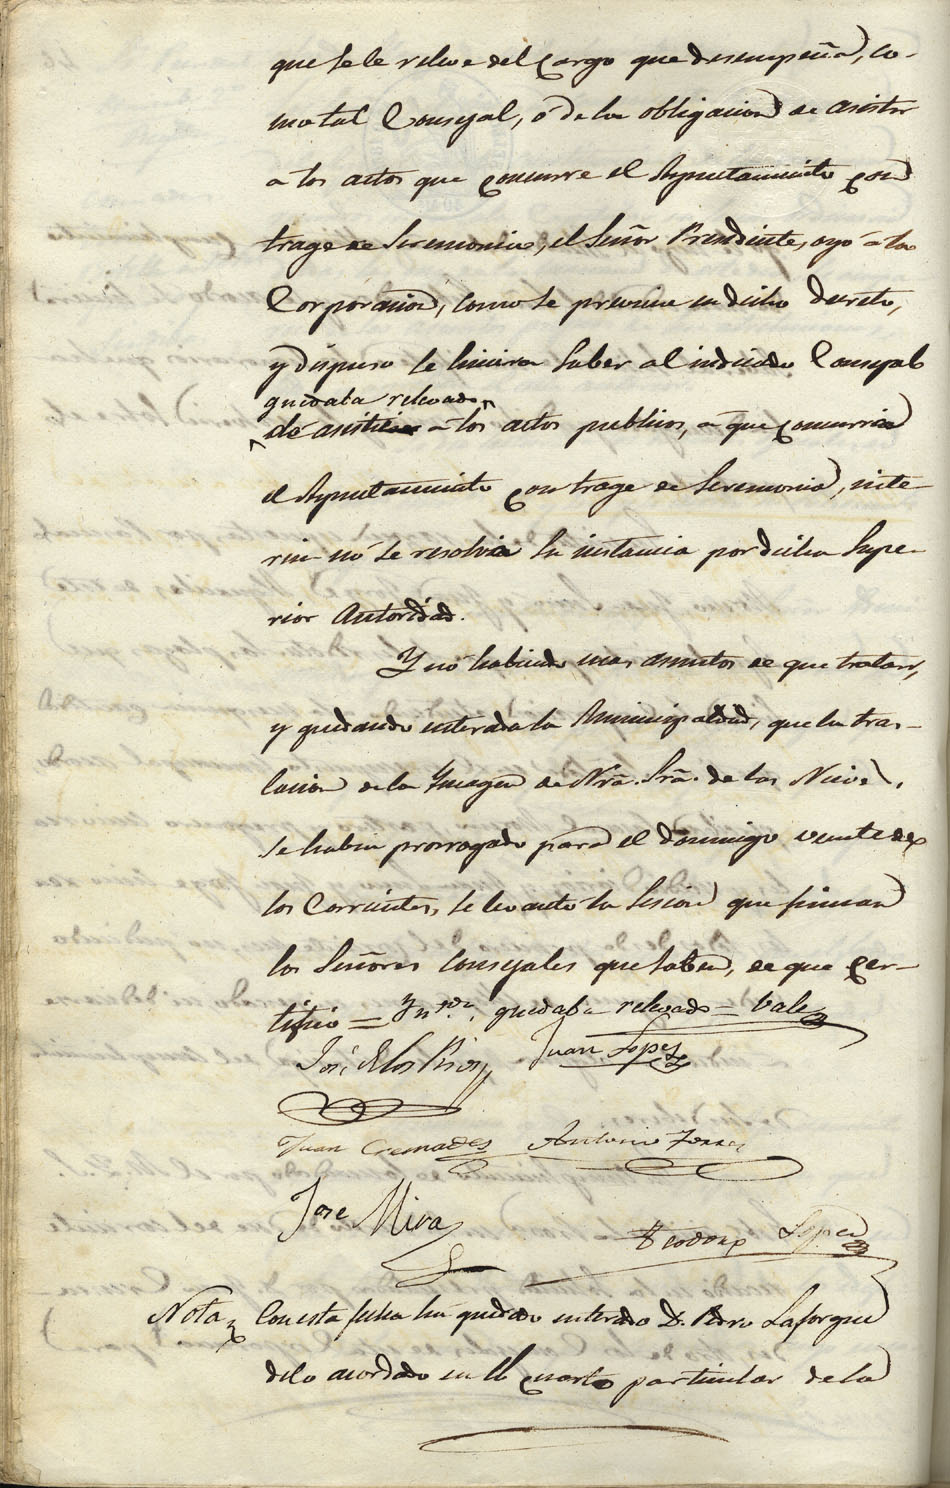 que se le releve del cargo que desempeña, co-
mo tal Consejal, ó de la obligacion de asistir
a los actos que concurre el Ayuntamiento con
trage de Seremonia, el Señor Presidente, oyó á la
Corporacion, como se previene en dicho decreto,
y dispuso se hiciera saber al indicado Consejal
quedaba relevado
de asistir a los actos publicos, á que concurria
el Ayuntamiento con trage de Seremonia, inte-
rin no se resolvia su instancia por dicha Supe-
rior Autoridad.
Y nó habiendo mas asuntos de que tratar,
y quedando enterada la Municipalidad, que la tras-
lacion de la Ymagen de Ntra. Sra. de las Nieves,
se habia prorrogado para el domingo veinte de
los Corrientes, se levantó la Sesion que firman
los Señores Consejales que saben, de que cer-
tifico = quedaba relevado = Vale
José de los Rios Juan Lopez
Juan Cremades Antonio Torres
Jose Mira
Teodoro Lopez
Nota Con esta fecha há quedado enterado D. Pedro Laforgue
de lo acordado en el cuarto particular de la